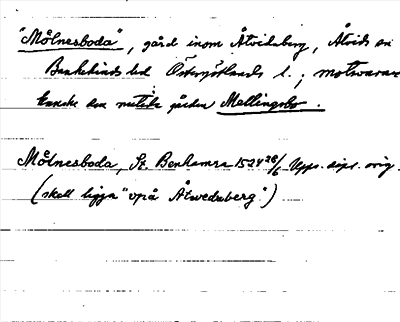 "Målnesboda", gård inom Åtvidaberg, Åtvids sn
Bankekinds hd Östergötlands l.; motsvarar
kanske den nutida gården Mellingsbo.
Målnesboda, St. Benhamra 1524 28/6 Upps. dipl. orig.
(skall ligga "vpå Åtwedaberg")